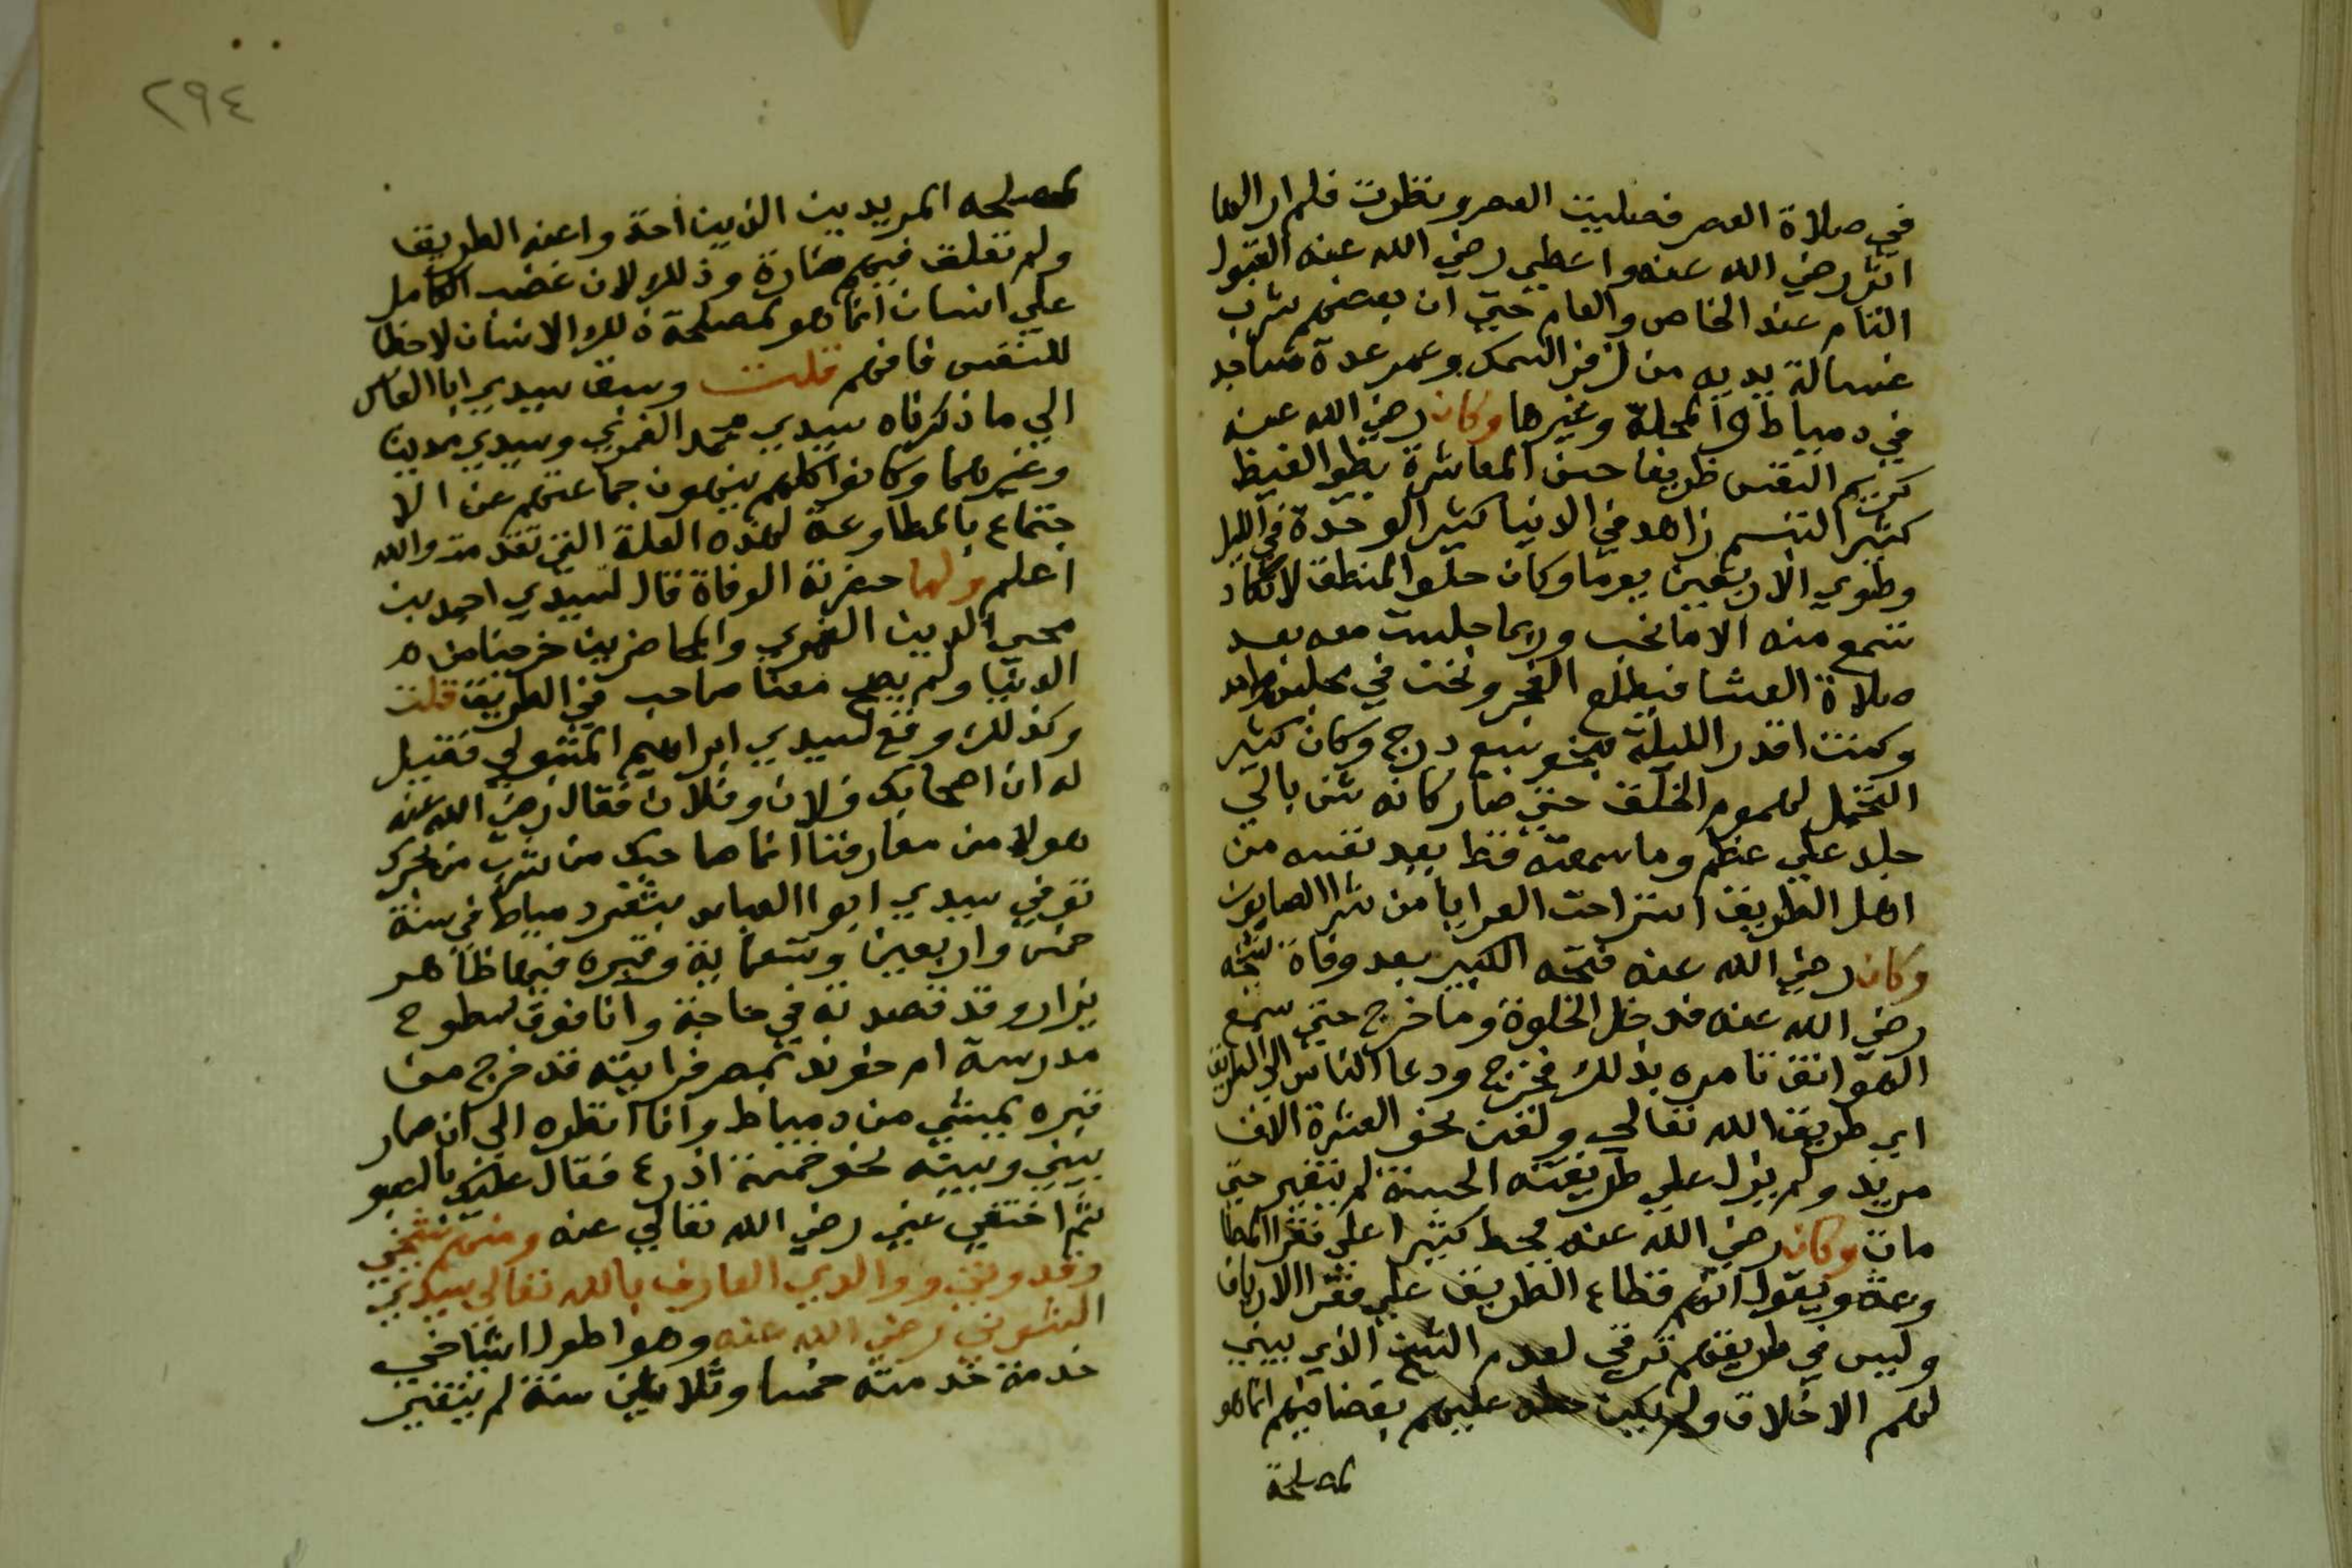 في صلاة العصر فصليت العصر ونظرت فلم ار الها
اثر رضي الله عنه واعطي رضي الله عنه القبول
التام عند الخاص والعام حتي ان بعضهم شرب
غسالة يديه من زفر السمك وعمر عدة مساجد
في دمياط والمحلة وغيرها وكان رضي الله عنه
كريم النفس ظريفا حسن المعاشرة بطو الغيظ
كثير التبسم زاهد في الدنيا كثير الوحدة في الليل
وطوي الاربعين يوما وكان حلو المنطق لا تكاد
تسمع منه الا ما تحب وربما جلست معه بعد
صلاة العشا فيطلع الفجر ونحن في مجلس واحد
وكنت اقدر الليلة بنحو سبع درج وكان كثير
التحمل لهموم الخلق حتي صار كانه شن بالي
جلد علي عظم وما سمعته قط يعد نفسه من
اهل الطريق استراحت العرايا من شرا الصابون
وكان رضي الله عنه فتحه الكبير بعد وفاة شيخه
رضي الله عنه فدخل الخلوة وما خرج حتي سمع
الهواتف تامره بذلك فخرج ودعا الناس الي الطريق
اي طريق الله تعالي ولقن نحو العشرة الاف
مريد ولم يزل علي طريقته الحسنة لم يتغير حتي
مات وكان رضي الله عنه يحط كثيرا علي فقرا المطا
وعة ويقول انهم قطاع الطريق علي فقرا الارياف
وليس في طريقهم ترقي لعدم الشيخ الذي يبين
لهم الاخلاق ولم يكن حطه عليهم بغضا فيهم انما هو
لمصلحة
٢٩٤
لمصلحه المريدين الذين احد واعنه الطريق
ولم تعلق فيهم ضارة وذلك لان غضب الكامل
علي انسان انما هو لمصلحة ذلك الانسان لاحظا
للنفس فافهم قلت وسبق سيدي ابا العباس
الي ما ذكرناه سيدي محمد الغمري وسيدي مدين
وغيرهما وكانوا كلهم ينهون جماعتهم عن الا
جتماع بالمطاوعة لهذه العلة التي تقدمت والله
اعلم ولما حضرته الوفاة قال لسيدي احمد بن
محيي الدين الغمري والحاضرين خرجنا من ه
الدنيا ولم يصح معنا صاحب في الطريق قلت
وكذلك وقع لسيدي ابراهيم المتبولي فقيل
له ان اصحابك فلان وفلان فقال رضي الله عنه
هولا من معارفنا انما صاحبك من شرب من بحرك
توفي سيدي ابو االعباس بثغر دمياط في سنة
خمس واربعين وتسعماية وقبره فيها ظاهر
يزار وقد قصدته في حاجة وانا فوق سطوح
مدرسة ام خوند بمصر فرايته قد خرج من
قبره يمشي من دمياط وانا انظره الي ان صار
بيني وبينه نحو خمسة اذرع فقال عليك بالصبر
ثم اختفي عني رضي الله تعالي عنه ومنهم شيخي
وقدوتي ووالدي العارف بالله تعالي سيدي
الشوني رضي الله عنه وهو اطول اشياخي
خدمة خدمته خمسا وثلاثين سنة لم يتغير